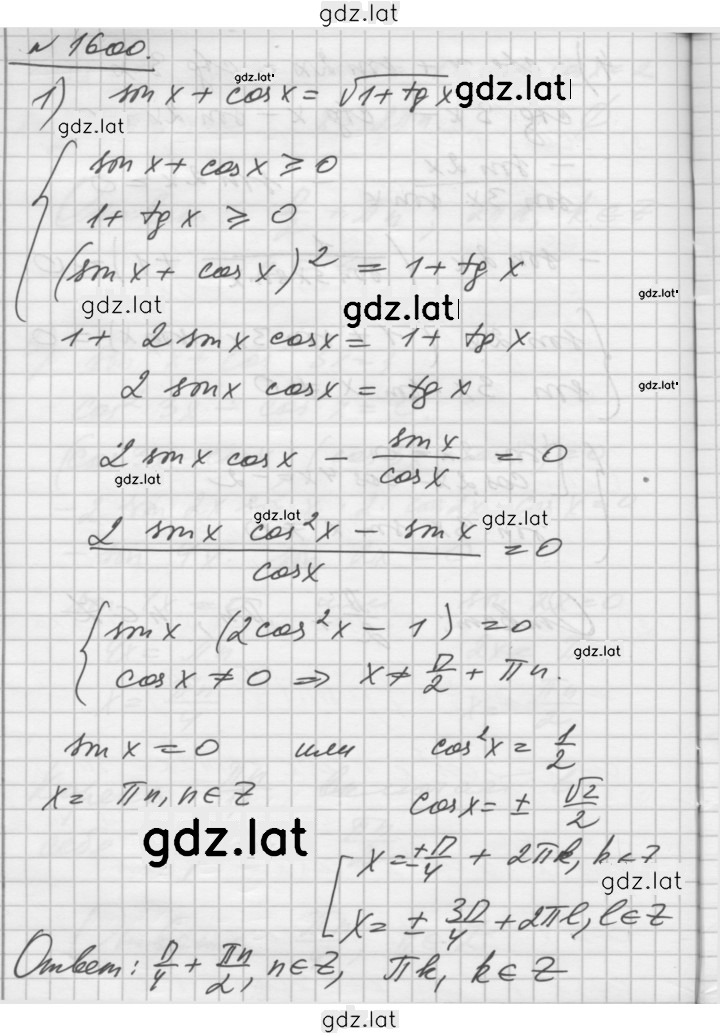 gdz.lat
№ 1600.
1) sin x + cos x = √(1 + tg x) gdz.lat gdz.lat
gdz.lat
{ sin x + cos x ≥ 0
1 + tg x ≥ 0
(sin x + cos x)² = 1 + tg x
gdz.lat gdz.lat gdz.lat
1 + 2 sin x cos x = 1 + tg x
2 sin x cos x = tg x gdz.lat
2 sin x cos x - sin x / cos x = 0
gdz.lat
gdz.lat gdz.lat
(2 sin x cos² x - sin x) / cos x = 0
{ sin x (2cos² x - 1) = 0
cos x ≠ 0 ⇒ x ≠ π/2 + πn. gdz.lat
sin x = 0 или cos² x = 1/2
x = πn, n ∈ Z cos x = ± √2/2
gdz.lat
[ x = ± π/4 + 2πk, k ∈ Z
gdz.lat
x = ± 3π/4 + 2πl, l ∈ Z
Ответ: π/4 + πn/2, n ∈ Z, πk, k ∈ Z
gdz.lat